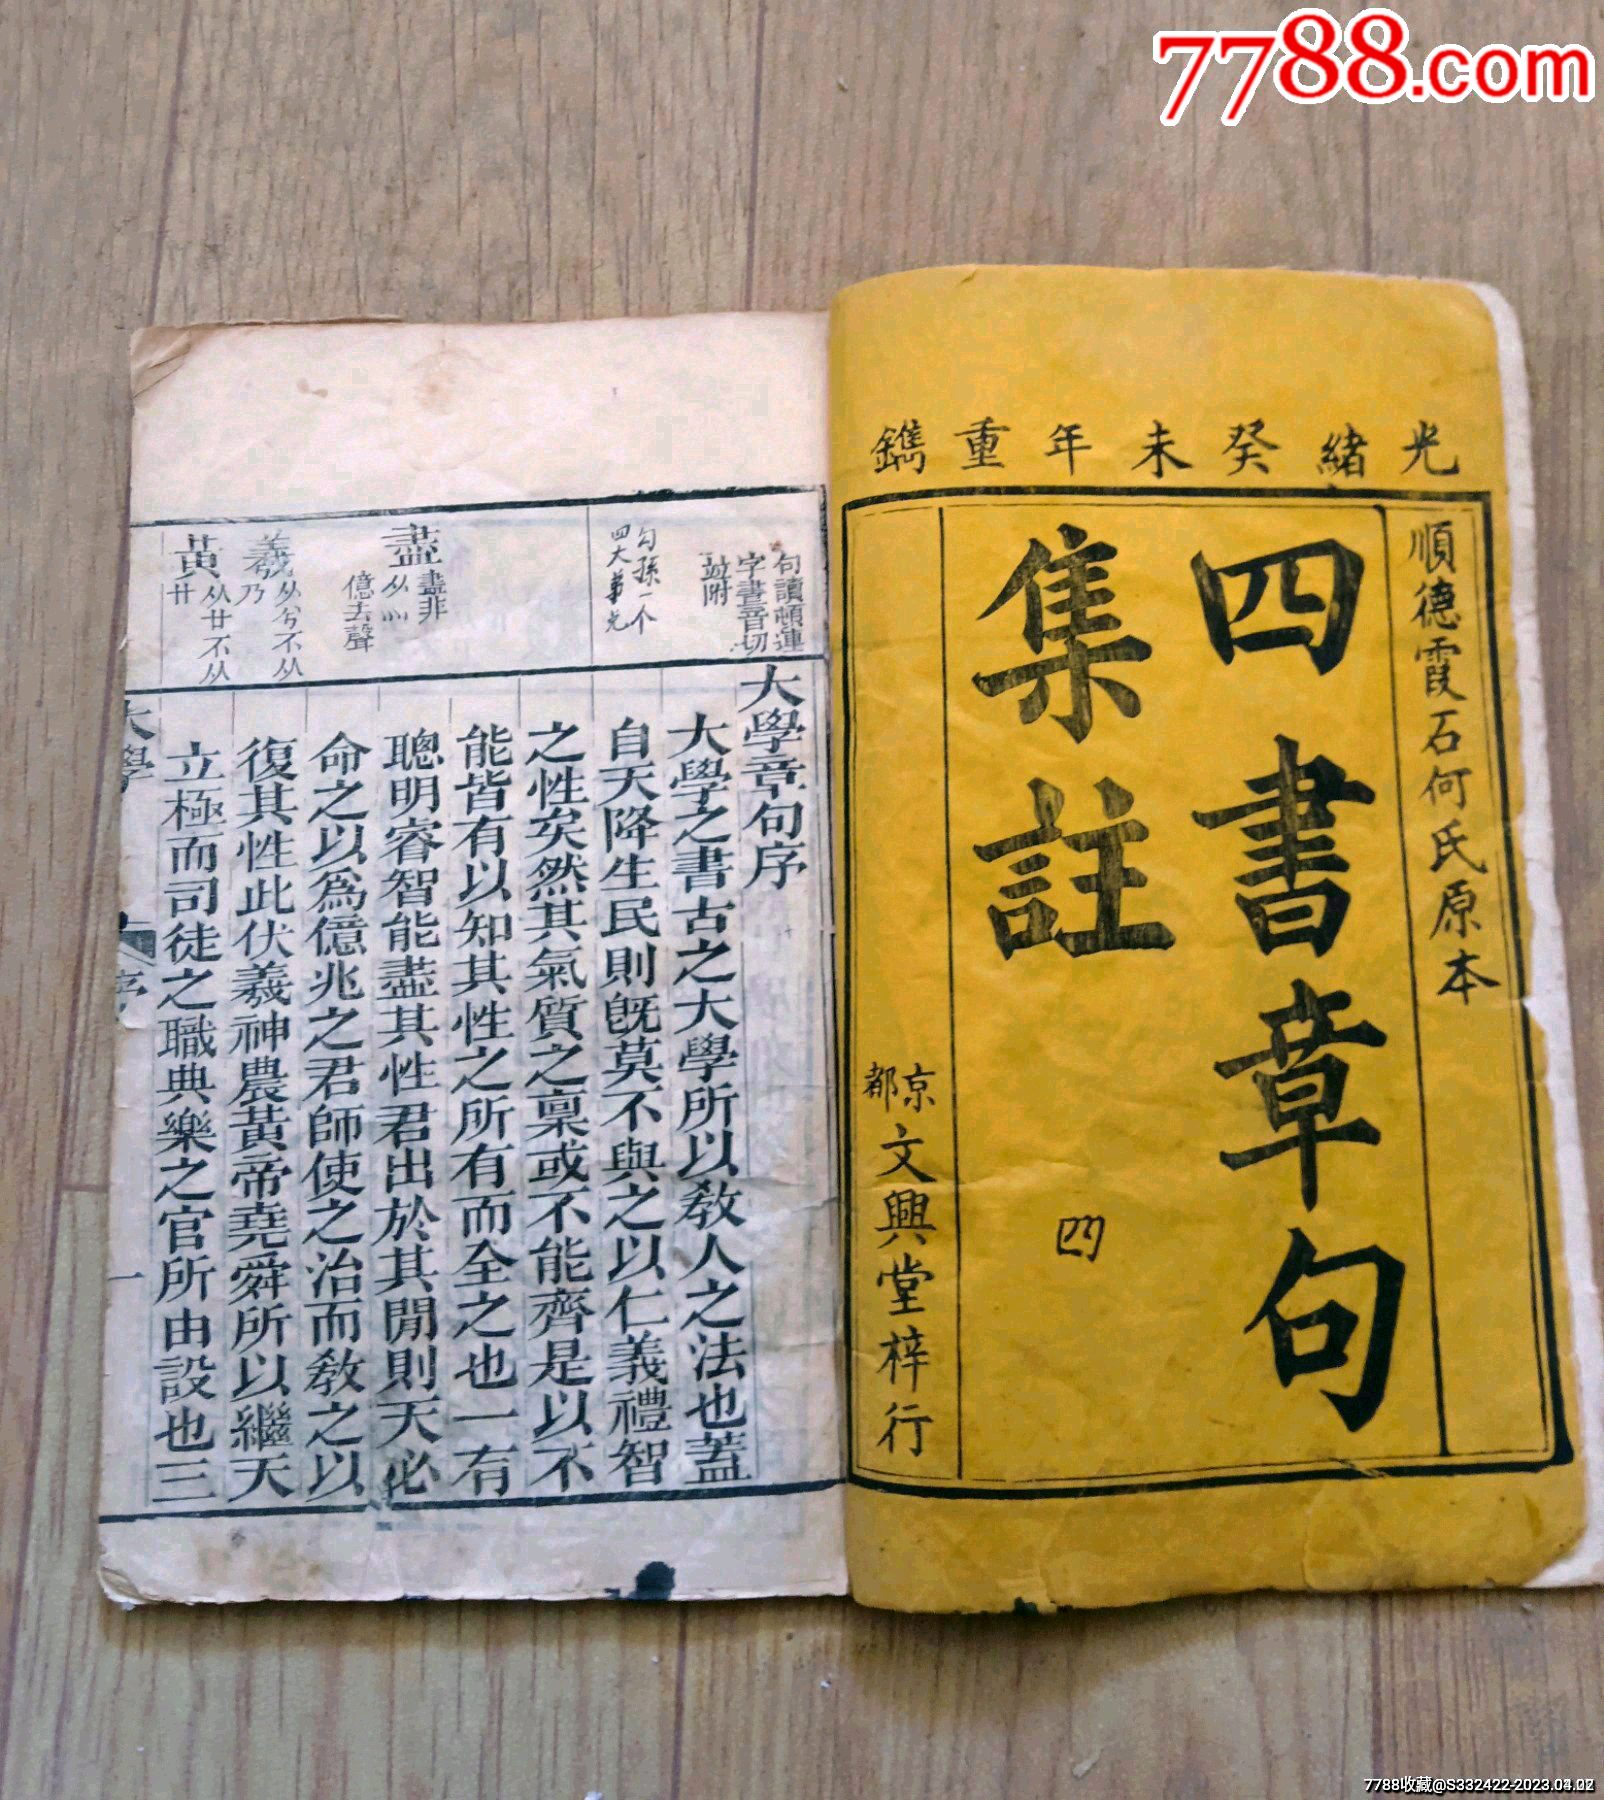 7788.com
光緒癸未年重鐫
順德霞石何氏原本
四書章句
集註
四
京都
文興堂梓行
句讀頓連
字畫音切
並附
盡
盡非
从灬
億去聲
羲
从兮不从
乃
黃
从廿不从
廿
大學章句序
大學之書古之大學所以教人之法也蓋
自天降生民則旣莫不與之以仁義禮智
之性矣然其氣質之稟或不能齊是以不
能皆有以知其性之所有而全之也一有
聰明睿智能盡其性者出於其閒則天必
命之以爲億兆之君師使之治而教之以
復其性此伏羲神農黃帝堯舜所以繼天
立極而司徒之職典樂之官所由設也三
大學
序
一
7788收藏@S332422-2023.04.02